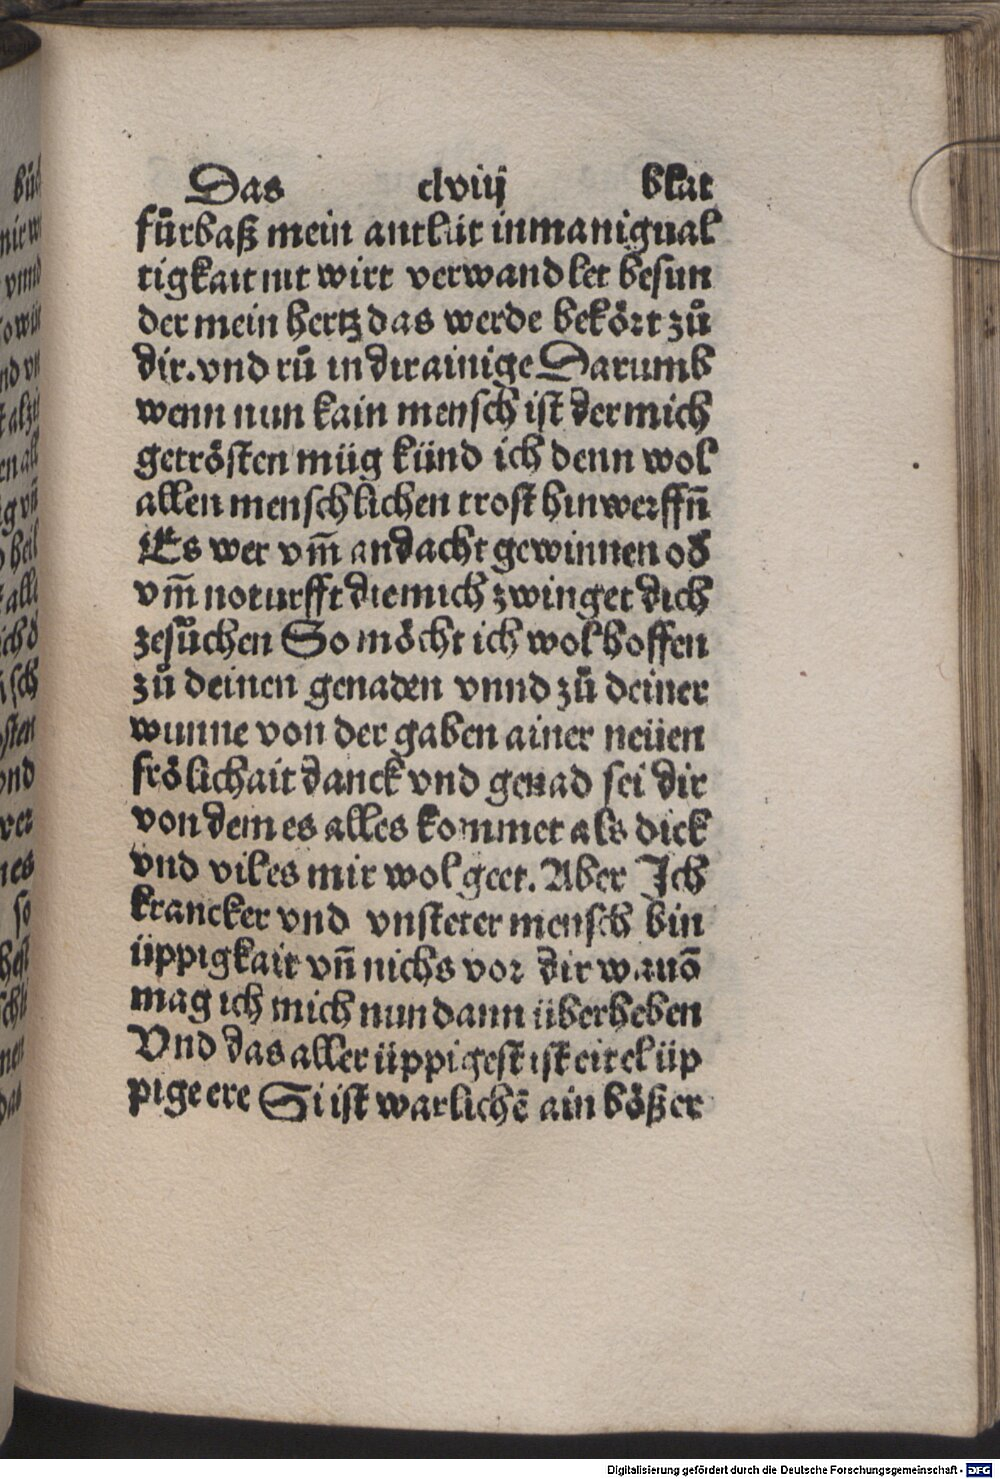 Das clviij blat
fürbaß mein antlüt inmanigual
tigkait nit wirt verwandlet besun
der mein hertz das werde bekört zů
dir. vnd rů in dir ainige Darumb
wenn nun kain mensch ist der mich
getrösten müg künd ich denn wol
allen menschlichen trost hinwerffn̄
Es wer vm̄ andacht gewinnen od̕
vm̄ noturfft die mich zwinget dich
zesůchen So möcht ich wol hoffen
zů deinen genaden vnnd zů deiner
wunne von der gaben ainer neüen
frölichait danck vnd genad sei dir
von dem es alles kommet als dick
vnd vil es mir wol geet. Aber Ich
krancker vnd vnsteter mensch bin
üppigkait vn̄ nichs vor dir wauō
mag ich mich nun dann überheben
Vnd das aller üppigest ist eitel üp
pige ere Si ist warlichē ain bößer
Digitalisierung gefördert durch die Deutsche Forschungsgemeinschaft - DFG